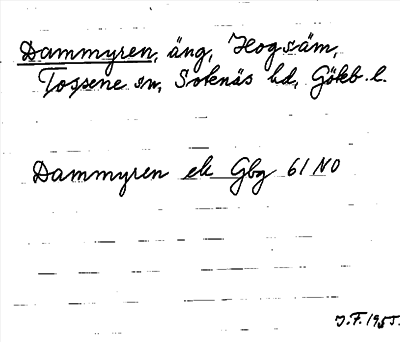 Dammyren, äng, Hogsäm,
Tossene sn, Sotenäs hd, Götkb. l.
Dammyren ek Gbg 61 NO
J.F. 1955.